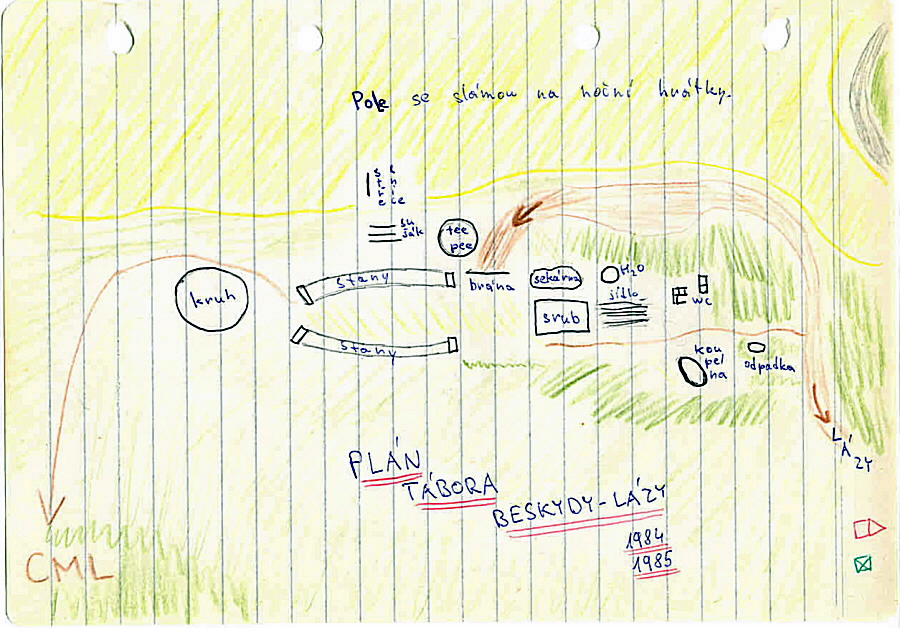 Pole se slámou na noční hrátky.
stře
lnice
su
šák
tee
pee
kruh
stany
brána
sekárna
H2O
jídlo
srub
WC
stany
kou
pel
na
odpadka
LÁZY
PLÁN
TÁBORA
BESKYDY-LÁZY
1984
1985
CML